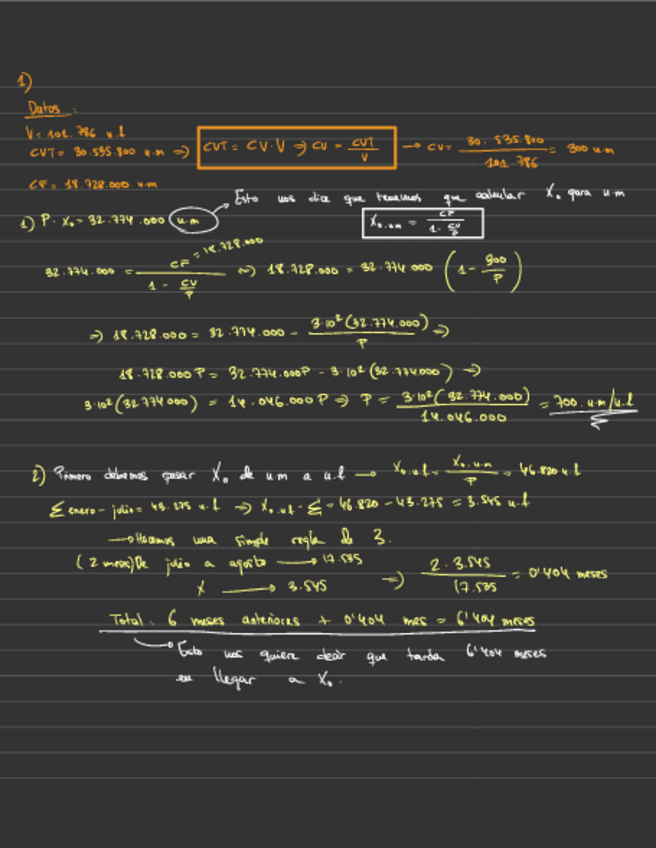 1)
Datos:
V = 101.786 u.f
CVT = 30.535.800 u.m => CVT = CV·V => CV = CVT/V → CV = 30.535.800/101.786 = 300 u.m
CF = 18.728.000 u.m
Esto nos dice que tenemos que calcular X₀ para u.m
1) P·X₀ = 32.774.000 u.m X₀,u.m = CF/(1 - CV/P)
32.774.000 = CF = 18.728.000/(1 - CV/P) => 18.728.000 = 32.774.000 (1 - 300/P)
=> 18.728.000 = 32.774.000 - 3·10²(32.774.000)/P =>
18.728.000P = 32.774.000P - 3·10²(32.774.000) =>
3·10²(32774000) = 14.046.000P => P = 3·10²(32.774.000)/14.046.000 = 700 u.m/u.f
2) Primero debemos pasar X₀ de u.m a u.f → X₀,u.f = X₀,u.m/P = 46.820 u.f
Σ enero-julio = 43.275 u.f => X₀,u.f - Σ = 46.820 - 43.275 = 3.545 u.f
→ Hacemos una simple regla de 3.
(2 meses) De julio a agosto → 17.535
X → 3.545 => 2·3.545/17.535 = 0'404 meses
Total: 6 meses anteriores + 0'404 mes = 6'404 meses
→ Esto nos quiere decir que tarda 6'404 meses
en llegar a X₀.